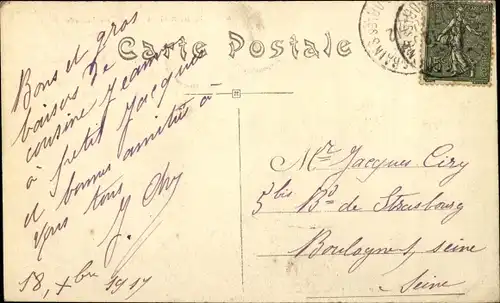 Carte Postale
Bons et gros
baisers de
cousine Jeanne
à petit Jacques
et bonnes amitiés à
vous tous
18, Xbre 1917
Mr Jacques Ciry
5bis Bd de Strasbourg
Boulogne s/ seine
Seine